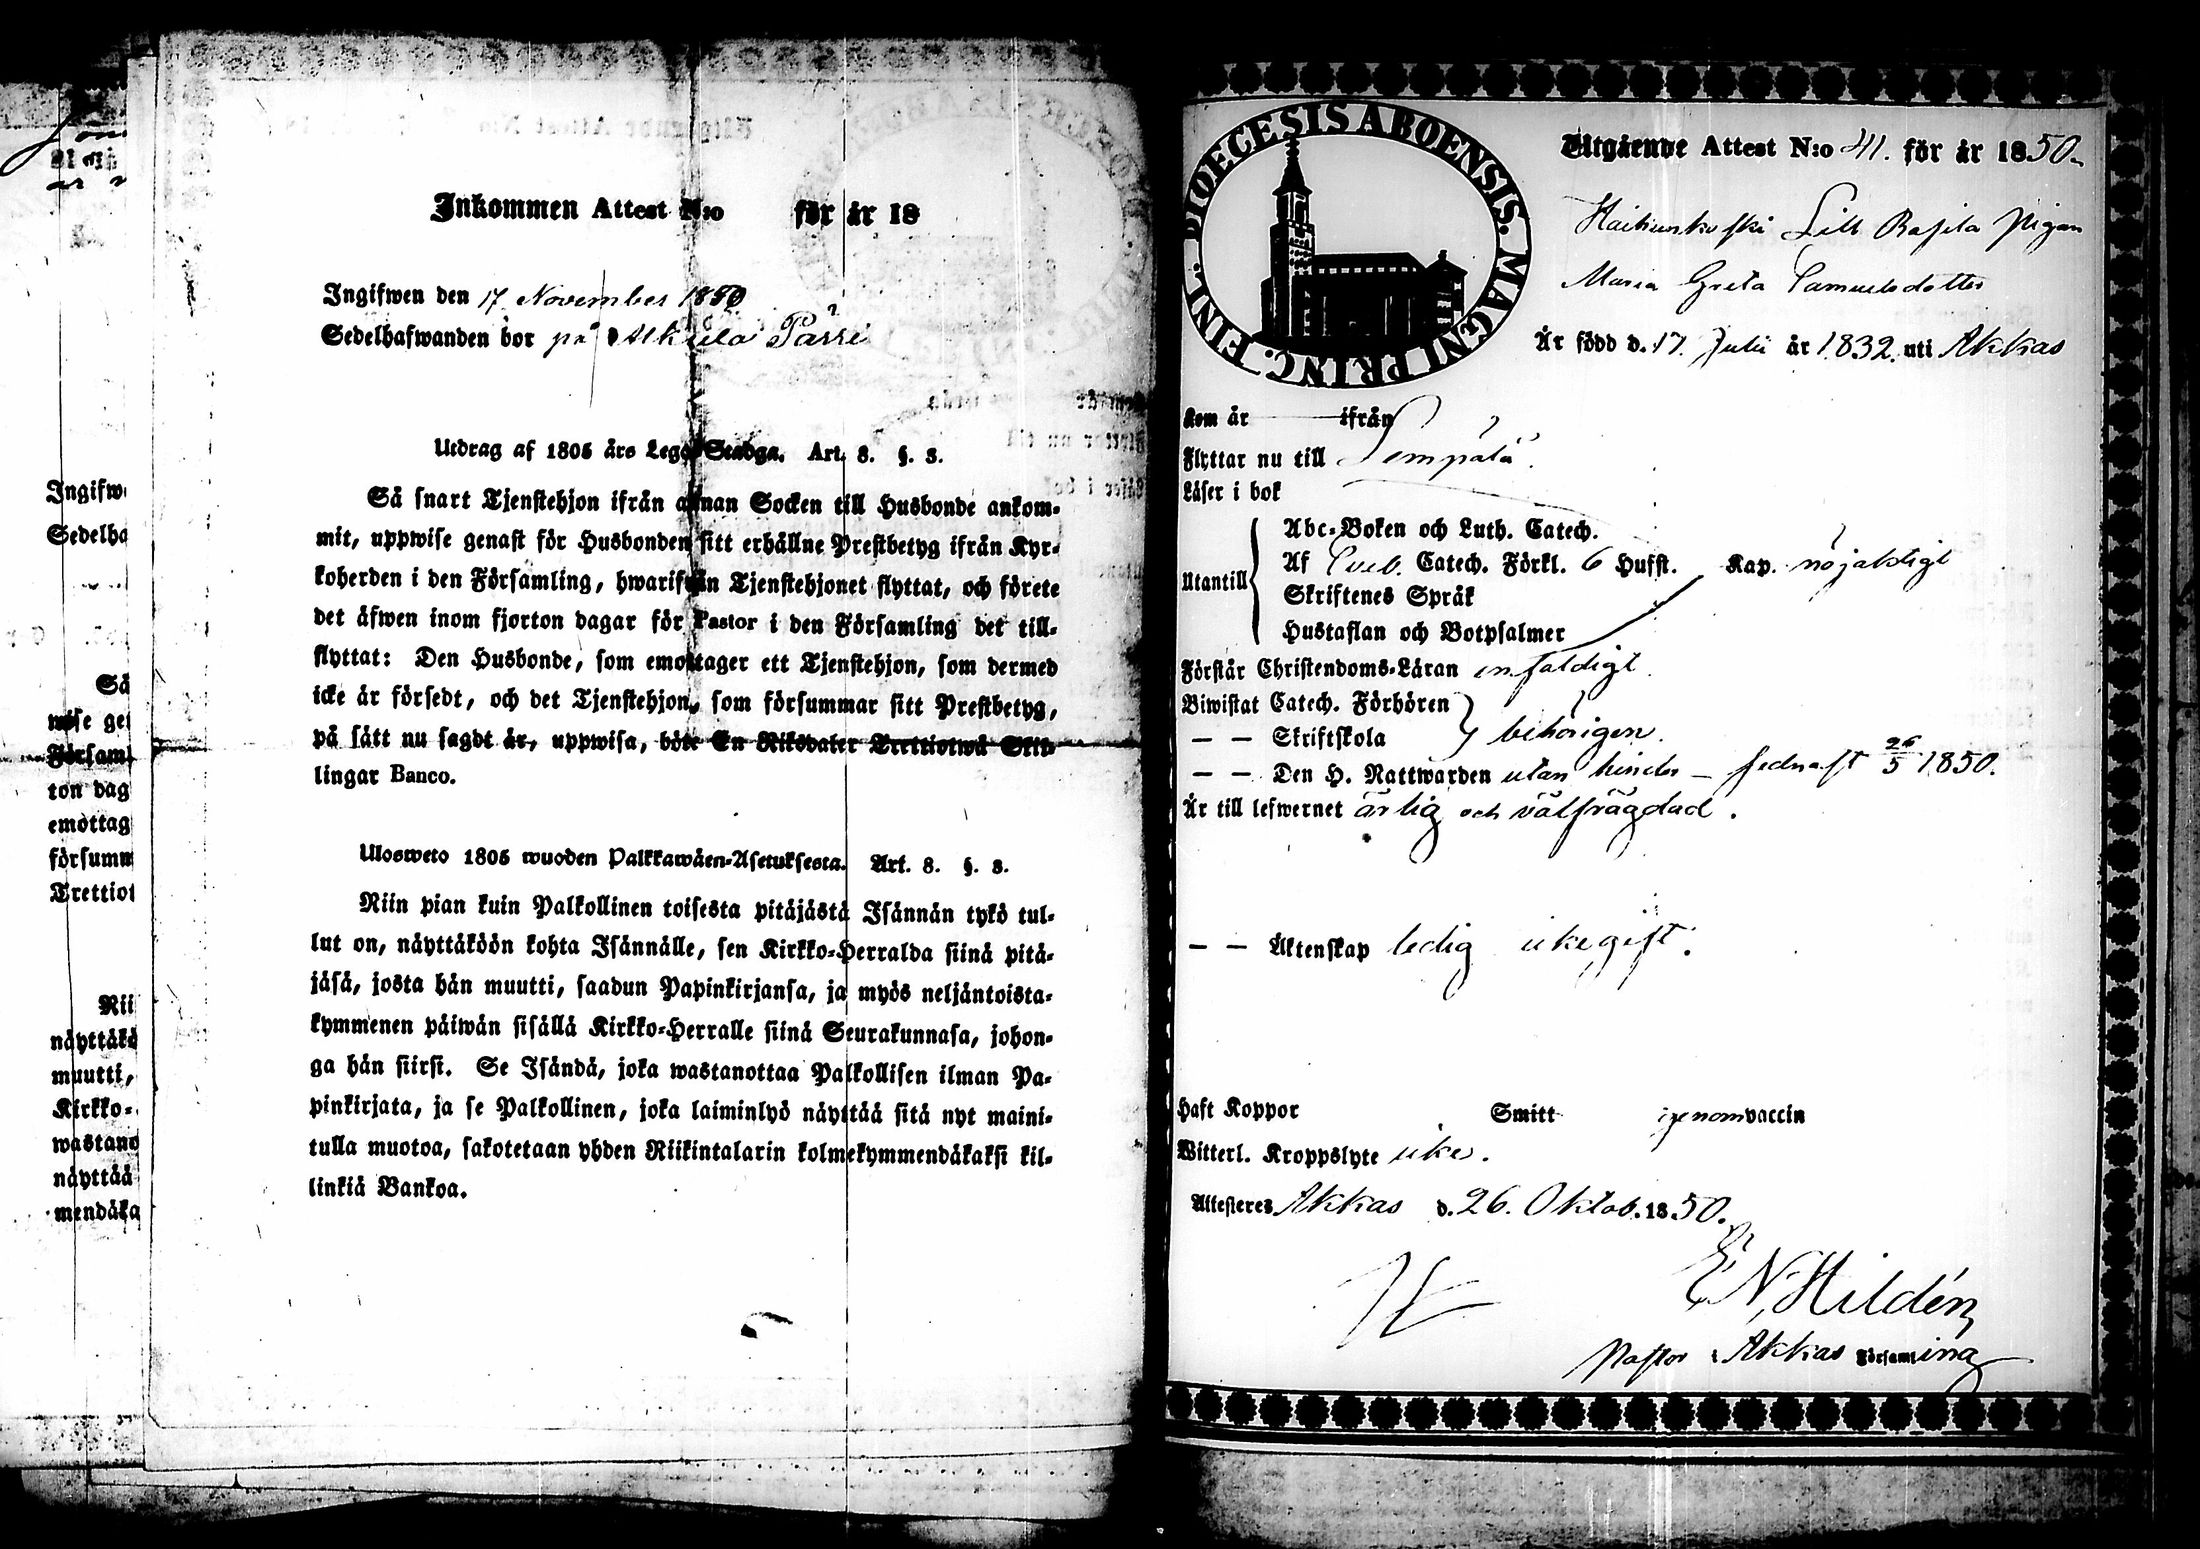 Inkommen Attest N:o för år 18
Ingifwen den 17 November 1850
Sedelhafwanden bor på Alkula Pärri
Utdrag af 1805 års Lego Stadga. Art. 8. §. 3.
Så snart Tjenstehjon ifrån annan Socken till Husbonde ankom-
mit, uppwise genast för Husbonden sitt erhållne Prestbetyg ifrån Kyr-
koherden i den Församling, hwarifrån Tjenstehjonet flyttat, och förete
det äfwen inom fjorton dagar för Pastor i den Församling det till-
flyttat: Den Husbonde, som emottager ett Tjenstehjon, som dermed
icke är försedt, och det Tjenstehjon, som försummar sitt Prestbetyg,
på sätt nu sagdt är, uppwisa, böte En Riksdaler Trettiotwå Skil-
lingar Banco.
Ulosweto 1805 wuoden Palkkawäen-Asetuksesta. Art. 8. §. 3.
Niin pian kuin Palkollinen toisesta pitäjästä Isännän tykö tul-
lut on, näyttäköön kohta Isännälle, sen Kirkko-Herralda siinä pitä-
jäsä, josta hän muutti, saadun Papinkirjansa, ja myös neljäntoista-
kymmenen päiwän sisällä Kirkko-Herralle siinä Seurakunnasa, johon-
ga hän siirsi. Se Isändä, joka wastanottaa Palkollisen ilman Pa-
pinkirjata, ja se Palkollinen, joka laiminlyö näyttää sitä nyt maini-
tulla muotoa, sakotetaan yhden Riikintalarin kolmekymmendäkaksi kil-
linkiä Bankoa.
Ingifw
Sedelha
Så
wise gen
Församl
ton dag
emottag
försumm
Trettiot
Nii
näyttäkö
muutti,
Kirkko-
wastano
näyttää
mendäka
FINL. DIOECESIS ABOENSIS. MAGNI PRINC.
Utgående Attest N:o 41. för år 1850
Haihunkoski Lill Rasila pigan
Maria Greta Samuelsdotter
Är född d. 17. Juli år 1832. uti Akkas
Kom år ifrån
Flyttar nu till Lempälä.
Läser i bok
Utantill
Abc-Boken och Luth. Catech.
Af Sveb. Catech. Förkl. 6 Hufst. Kap. nöjaktigt
Skriftenes Språk
Hustaflan och Botpsalmer
Förstår Christendoms-Läran enfaldigt
Biwistat Catech. Förhören
— — Skriftskola behörigen.
— — Den H. Nattwarden utan hinder – sednast 26/5 1850.
Är till lefwernet ärlig och välfrägdad.
— — Äktenskap ledig ickegift.
Haft Koppor Smitt igenom vaccin
Witterl. Kroppslyte icke.
Attesteres Akkas d. 26. Oktob. 1850.
E N, Hildén
Pastor i Akkas Församling